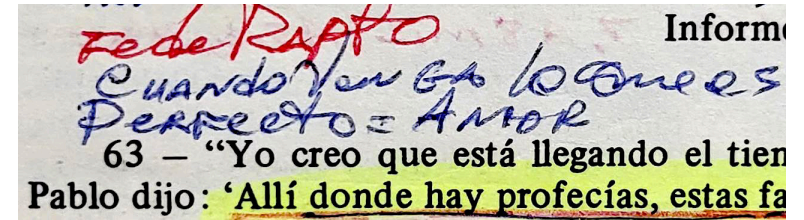 Fe de RAPTO
Informe
CUANDO VenGA lo que es
Perfecto = AMOR
63 – “Yo creo que está llegando el tien
Pablo dijo: ‘Allí donde hay profecías, estas fa